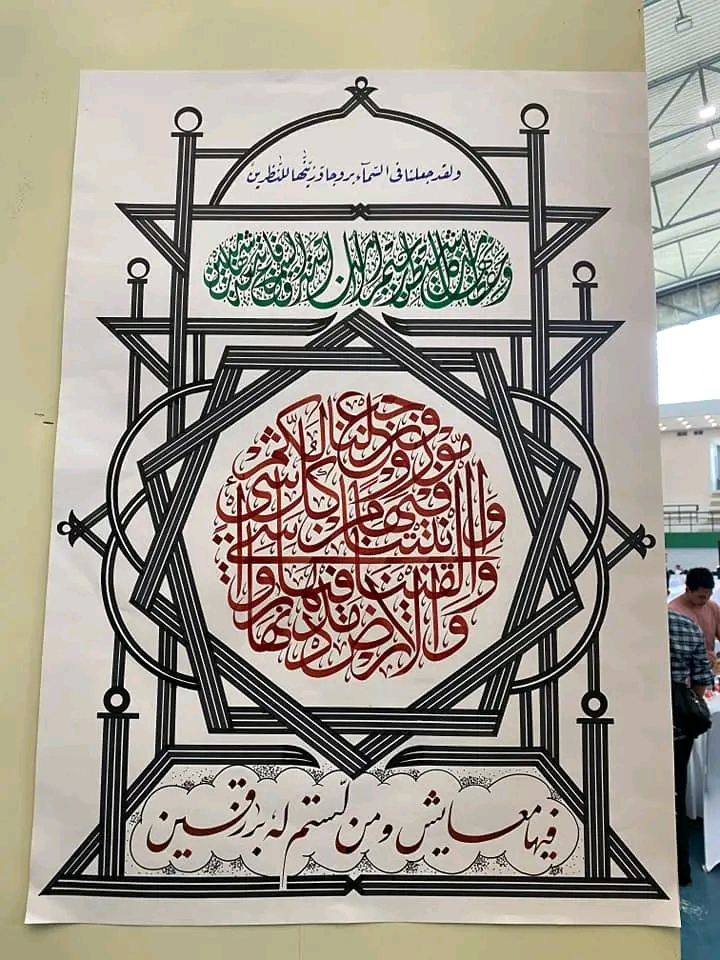 ولقد جعلنا فى السّمآء بروجا وزيّنّٰها للنّٰظرين
وحفظنٰها من كل شيطٰن رجيم الا من استرق السمع فاتبعه شهاب مبين
والارض مددنٰها والقينا فيها رواسي وانبتنا فيها من كل شيء موزون وجعلنا لكم
فيها معايش ومن لّستم له برٰزقين